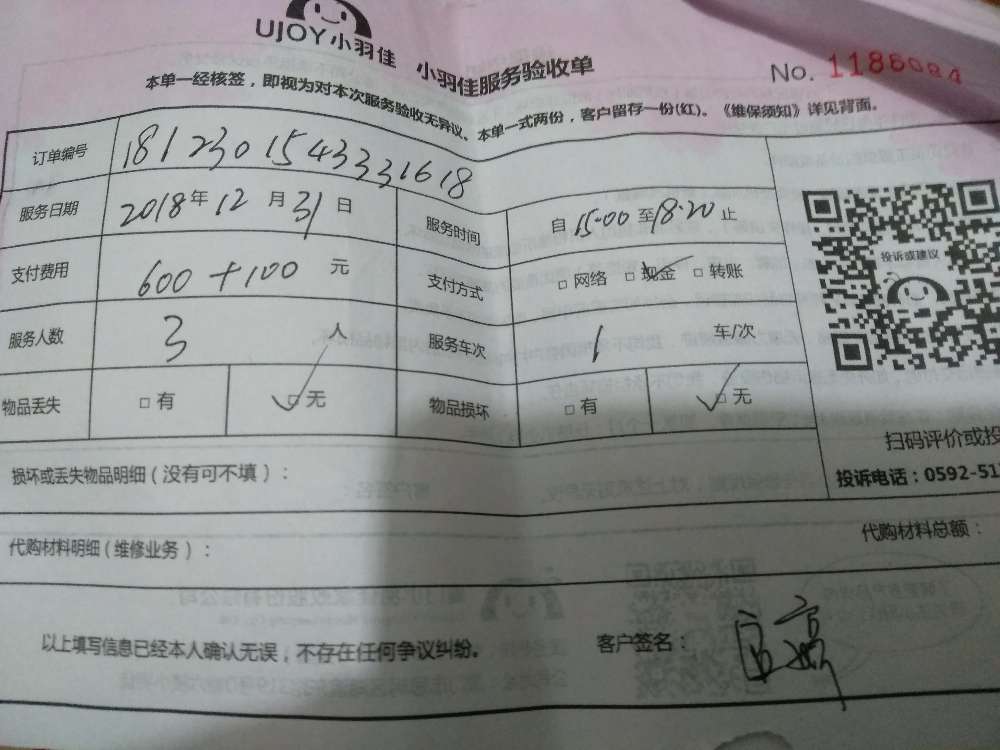 UJOY小羽佳 小羽佳服务验收单
No. 1186084
本单一经核签，即视为对本次服务验收无异议、本单一式两份，客户留存一份(红)。《维保须知》详见背面。
订单编号 1812301543331618
服务日期 2018年12月31日 服务时间 自15:00至18:20止
支付费用 600+100元 支付方式 □网络 □现金 □转账
服务人数 3人 服务车次 1 车/次
物品丢失 □有 □无 物品损坏 □有 □无
投诉或建议
扫码评价或投
损坏或丢失物品明细（没有可不填）：
投诉电话：0592-51
代购材料明细（维修业务）：
代购材料总额：
以上填写信息已经本人确认无误，不存在任何争议纠纷。 客户签名：